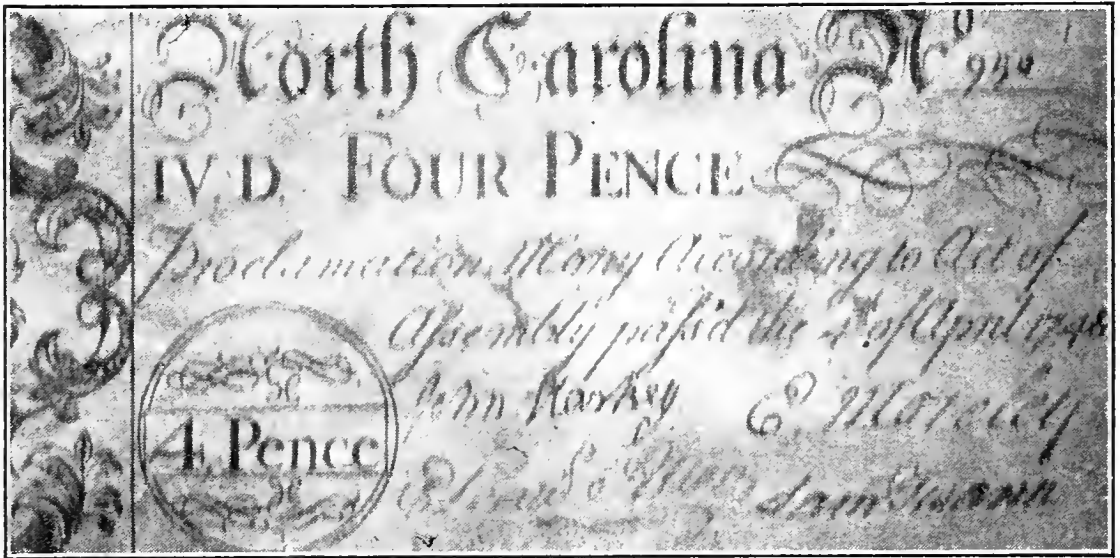 North Carolina No
IV. D. FOUR PENCE
Proclamation Mony According to Act of
Assembly pass'd the 4 of April 1748
4 Pence
John Starkey
Sam Swann